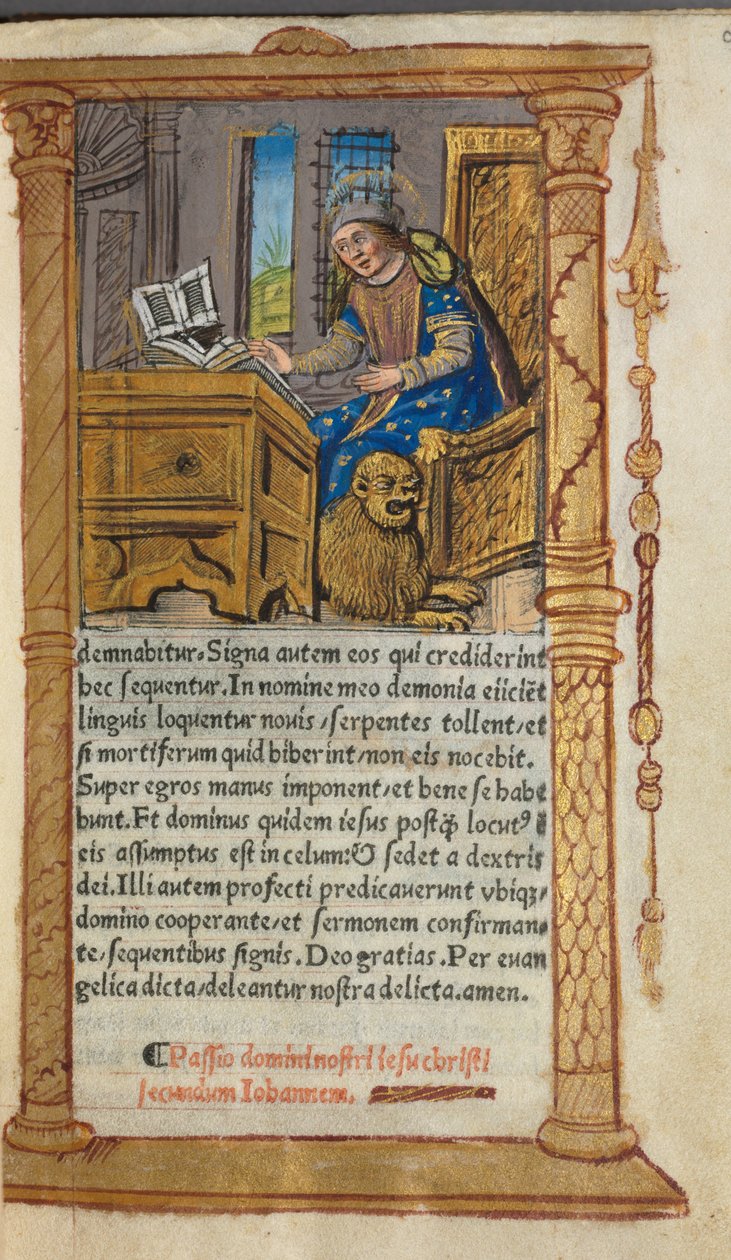 demnabitur. Signa autem eos qui crediderint
hec sequentur. In nomine meo demonia eiiciēt
linguis loquentur nouis / serpentes tollent / et
si mortiferum quid biberint / non eis nocebit.
Super egros manus imponent / et bene se habe
bunt. Et dominus quidem iesus postꝙ̃ locutꝰ ē
eis assumptus est in celum: & sedet a dextris
dei. Illi autem profecti predicauerunt vbiqꝫ /
domino cooperante / et sermonem confirman-
te / sequentibus signis. Deo gratias. Per euan
gelica dicta / deleantur nostra delicta. amen.
¶ Passio domini nostri iesu christi
secundum Iohannem.